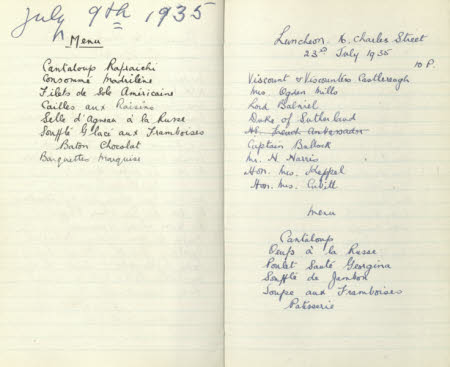 July 9th 1935
Menu
Cantaloup Rafraichi
Consommé Madrilène
Filets de Sole Américaine
Cailles aux Raisins
Selle d'Agneau à la Russe
Soufflé Glacé aux Framboises
Baton Chocolat
Barquettes Marquise
Luncheon. 16 Charles Street
23rd July 1935
10 P.
Viscount & Viscountess Castlereagh
Mrs. Ogden Mills
Lord Balniel
Duke of Sutherland
French Ambassador
Captain Bullock
Mr. H. Harris
Hon. Mrs. Keppel
Hon. Mrs. Cubitt
Menu
Cantaloup
Oeufs à la Russe
Poulet Sauté Georgina
Soufflé de Jambon
aux Framboises
Patisserie